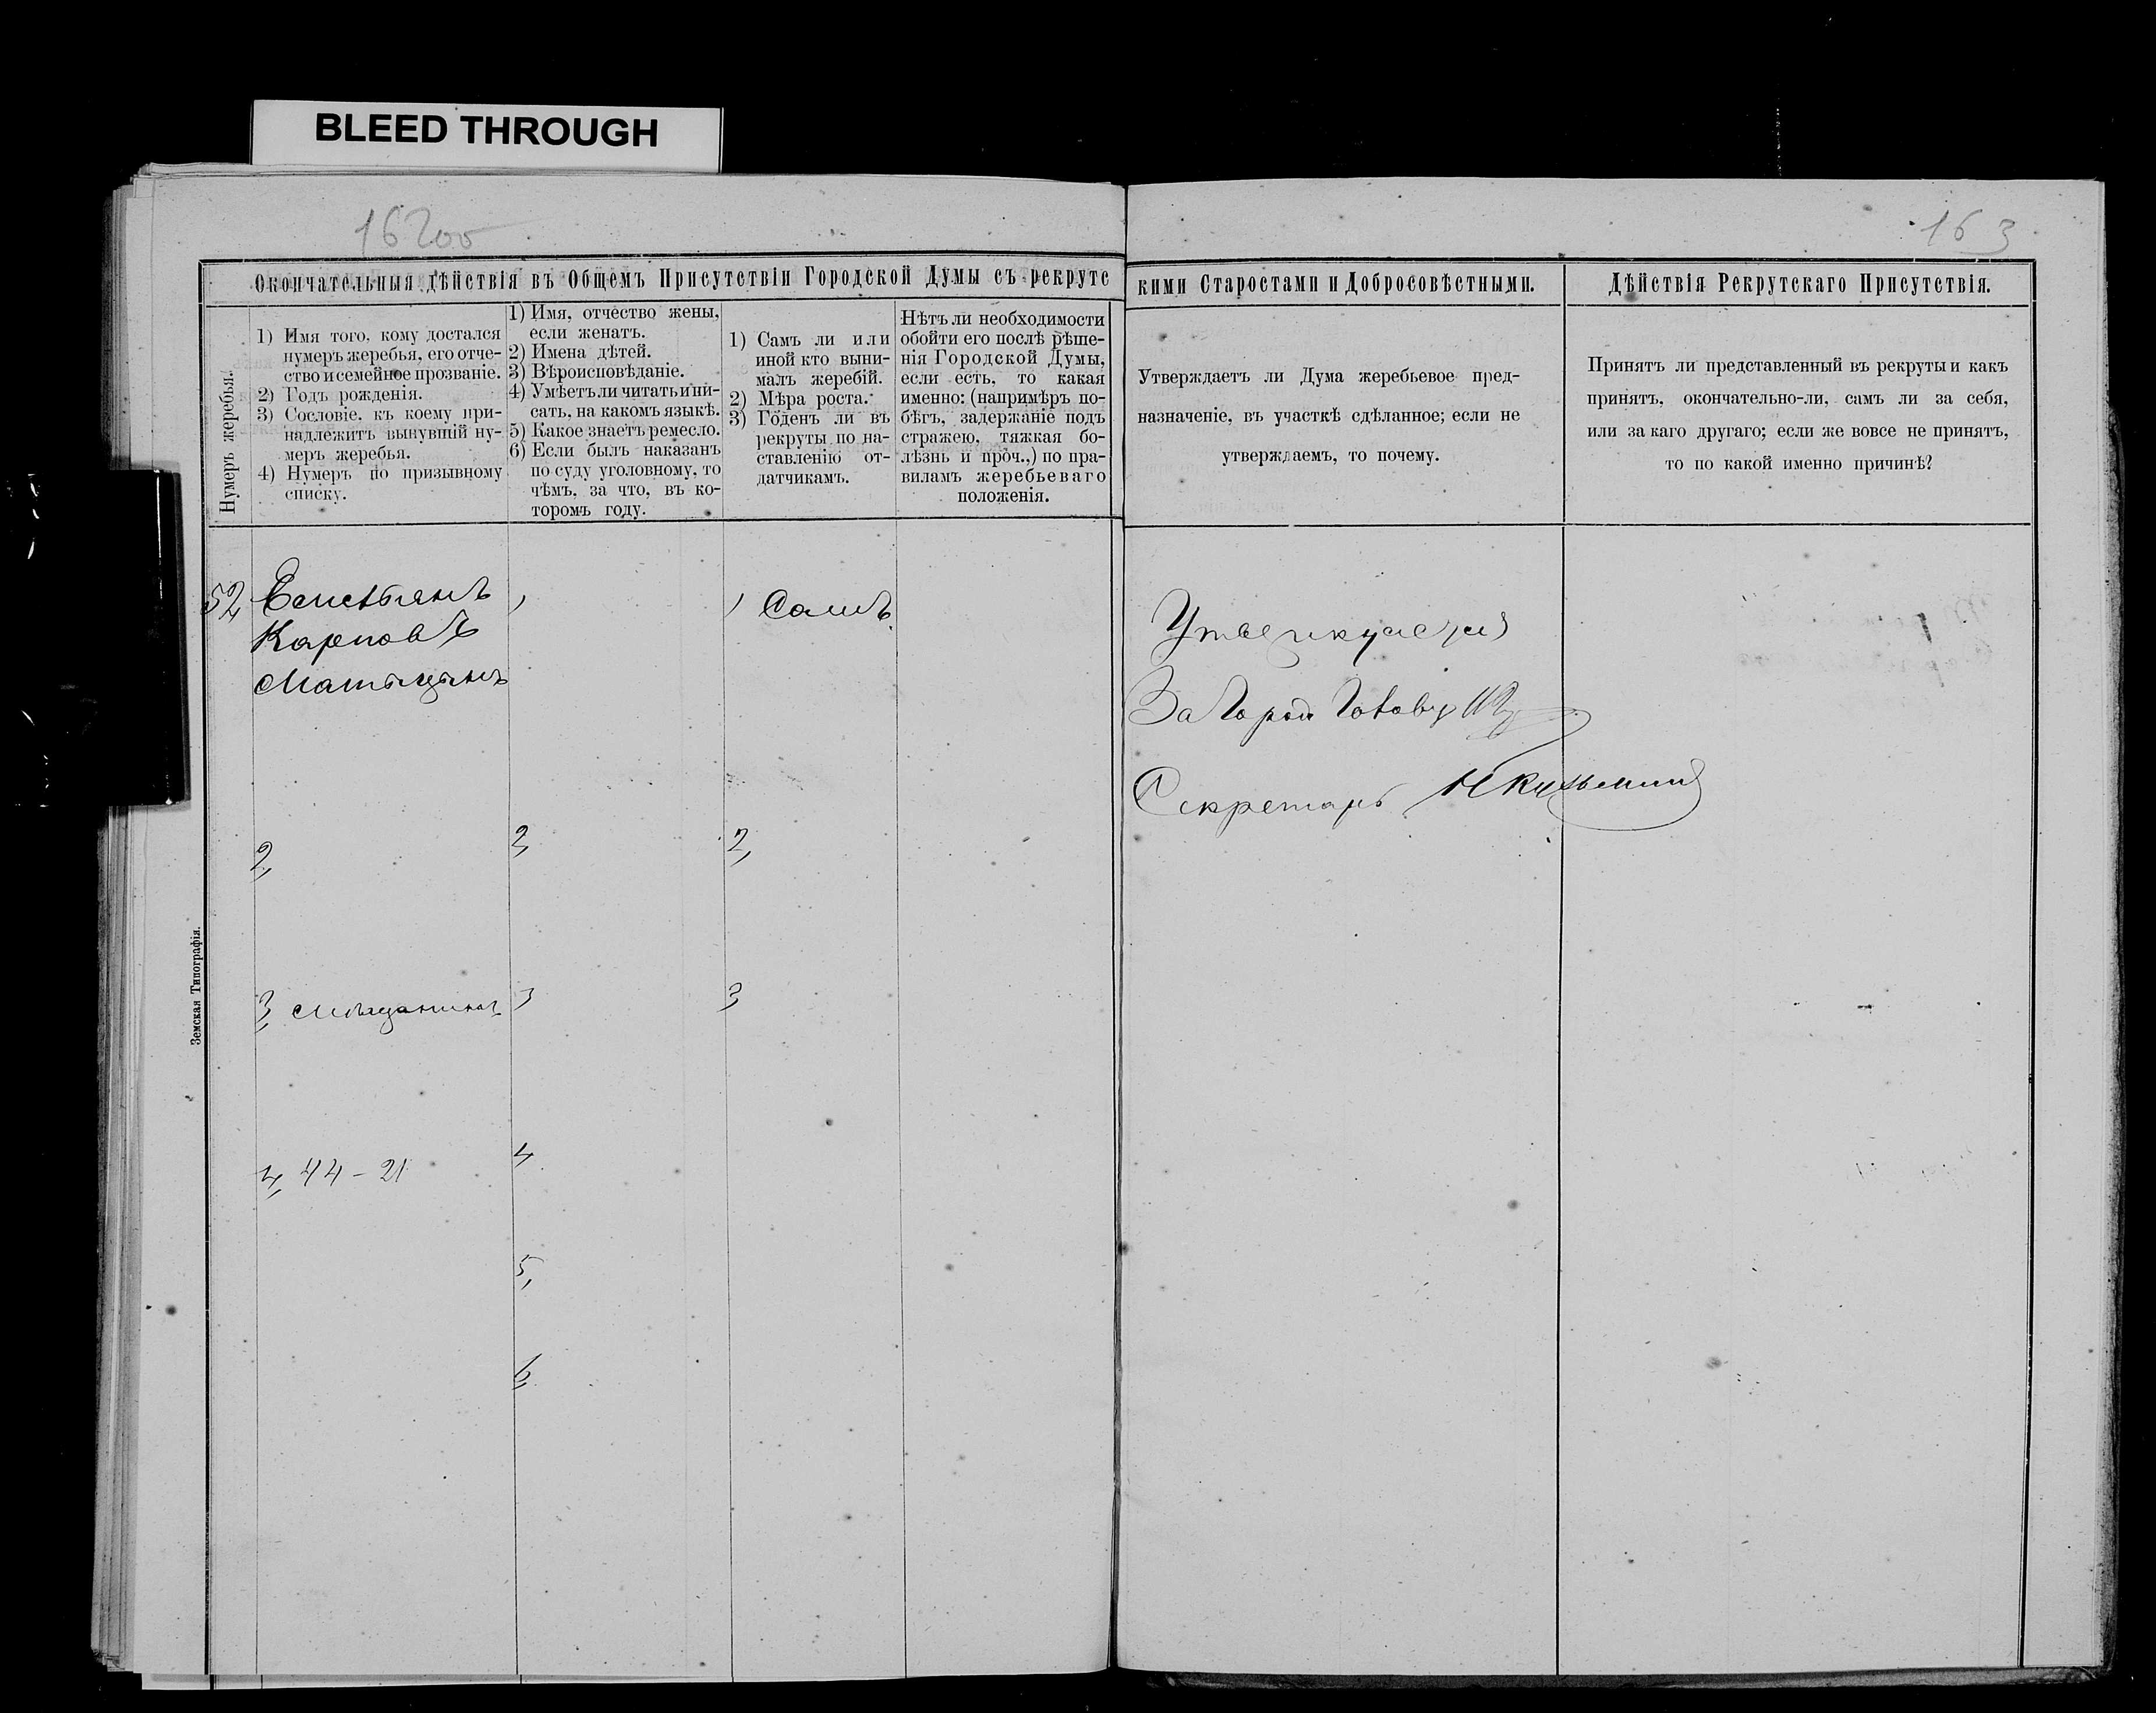 BLEED THROUGH
16 2об
163
Окончательныя дѣйствія въ Общемъ Присутствіи Городской Думы съ рекрутс
кими Старостами и Добросовѣстными.
Дѣйствія Рекрутскаго Присутствія.
Нумеръ жеребья.
1) Имя того, кому достался
нумеръ жеребья, его отче-
ство и семейное прозваніе.
2) Годъ рожденія.
3) Сословіе, къ коему при-
надлежитъ вынувшій ну-
меръ жеребья.
4) Нумеръ по призывному
списку.
1) Имя, отчество жены,
если женатъ.
2) Имена дѣтей.
3) Вѣроисповѣданіе.
4) Умѣетъ ли читать и пи-
сать, на какомъ языкѣ.
5) Какое знаетъ ремесло.
6) Если былъ наказанъ
по суду уголовному, то
чѣмъ, за что, въ ко-
торомъ году.
1) Самъ ли или
иной кто выни-
малъ жеребій.
2) Мѣра роста.
3) Годенъ ли въ
рекруты по на-
ставленію от-
датчикамъ.
Нѣтъ ли необходимости
обойти его послѣ рѣше-
нія Городской Думы,
если есть, то какая
именно: (напримѣръ по-
бѣгъ, задержаніе подъ
стражею, тяжкая бо-
лѣзнь и проч.,) по пра-
виламъ жеребьеваго
положенія.
Утверждаетъ ли Дума жеребьевое пред-
назначеніе, въ участкѣ сдѣланное; если не
утверждаемъ, то почему.
Принятъ ли представленный въ рекруты и какъ
принятъ, окончательно-ли, самъ ли за себя,
или за каго другаго; если же вовсе не принятъ,
то по какой именно причинѣ?
52
Емельянъ
Карповъ
1
1 Самъ
Утверждается
За Город Голову
Секретарь Н Кузьминъ
2,
2,
2,
3, мѣщанинъ
3
3
4, 44-21
4
5,
6,
Земская Типографія.